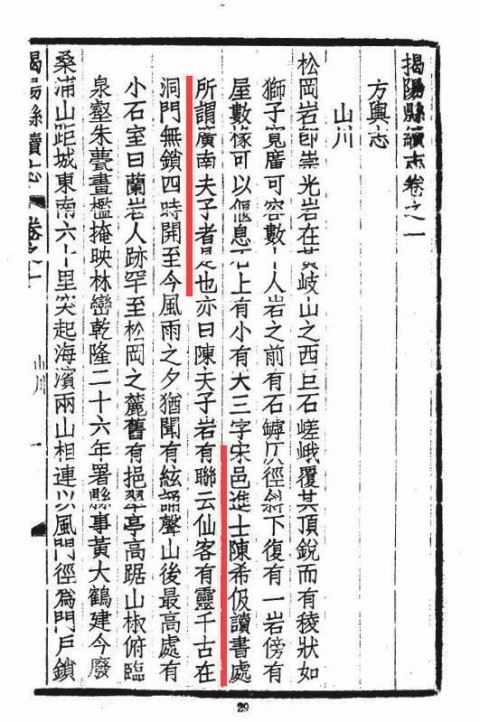 揭陽縣續志卷之一
方輿志
山川
松岡岩卽崇光岩在黃岐山之西巨石嵯峨覆其頂銳而有稜狀如
獅子寬廣可容數十人岩之前有石罅仄徑斜下復有一岩傍有
屋數椽可以偃息石上有小有大三字宋邑進士陳希伋讀書處
所謂廣南夫子者是也亦曰陳夫子岩有聯云仙客有靈千古在
洞門無鎖四時開至今風雨之夕猶聞有絃誦聲山後最高處有
小石室曰蘭岩人跡罕至松岡之麓舊有挹翠亭高踞山椒俯臨
泉壑朱甍畫檻掩映林巒乾隆二十六年署縣事黃大鶴建今廢
桑浦山距城東南六十里突起海濱兩山相連以風門徑為門戶鎖
揭陽縣續志
卷之一
山川
一
29